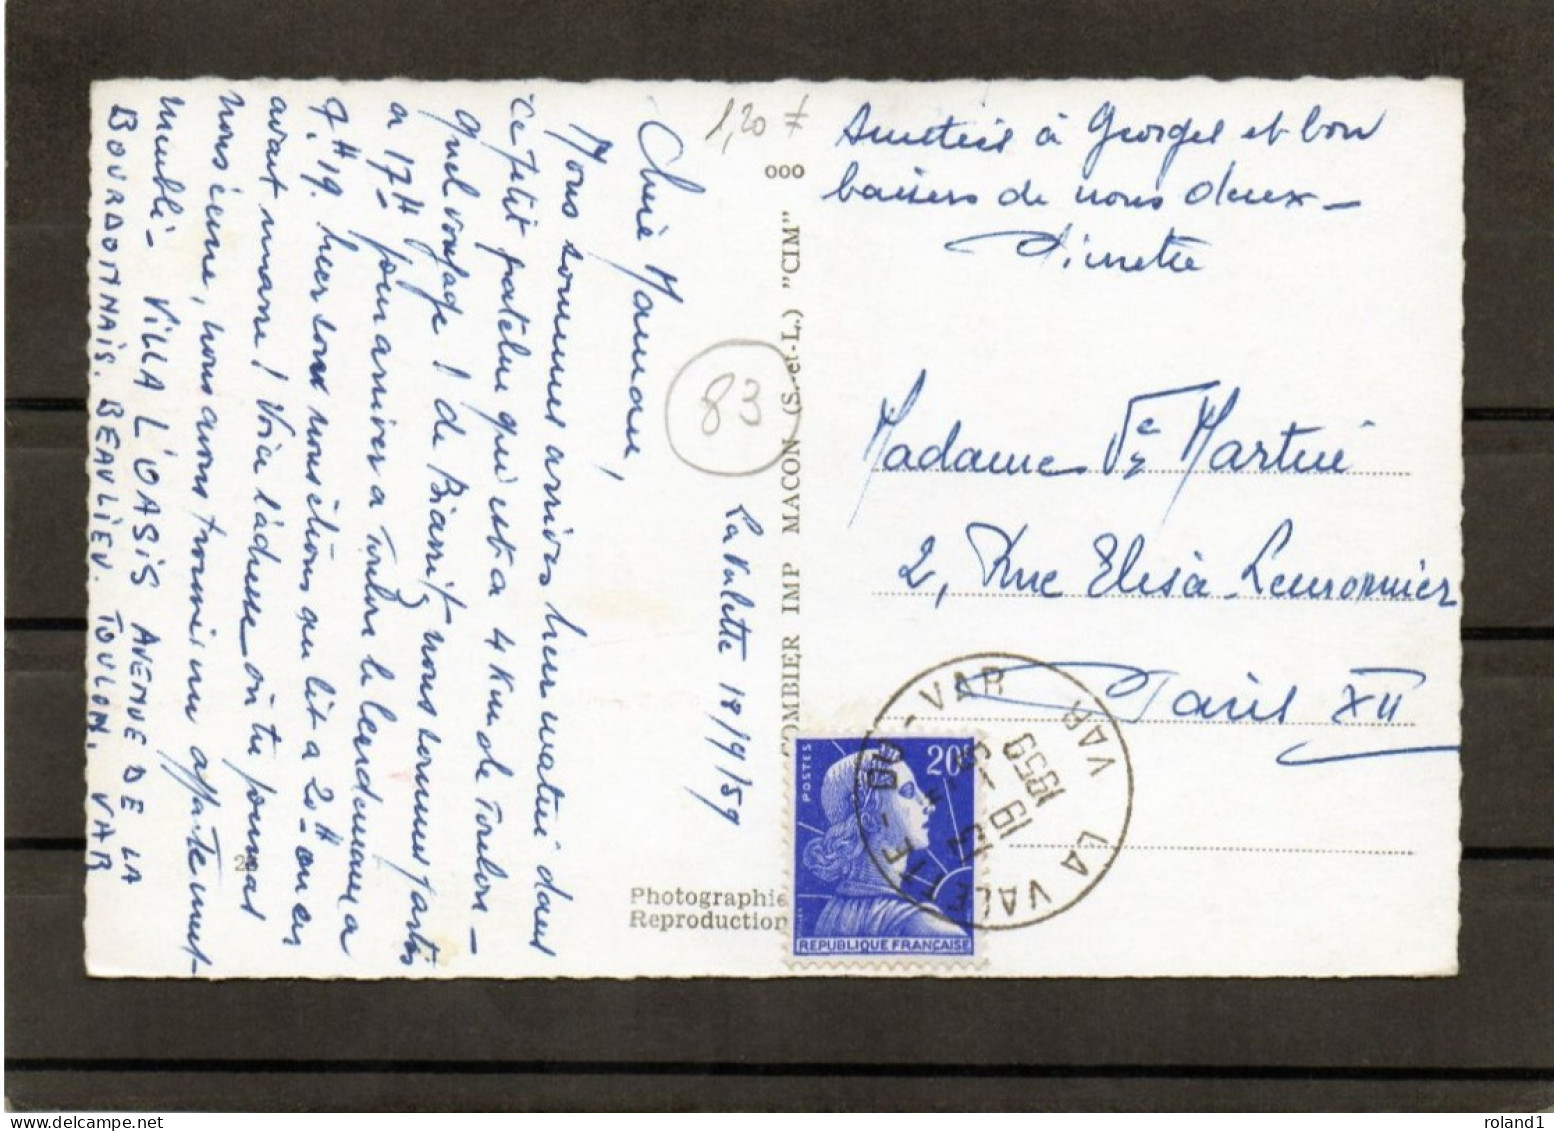 La Valette 18/9/59
Chère Maman,
Nous sommes arrivés hier matin dans
ce petit patelin qui est à 4 Km de Toulon -
quel voyage ! de Biarritz nous sommes partis
à 17H pour arriver à Toulon le lendemain à
7H19. hier soir nous étions au lit à 20H on en
avait marre ! Voici l'adresse où tu pourras
nous écrire, nous avons trouvé un appartement
meublé - VILLA L'OASIS AVENUE DE LA
BOURDONNAIS. BEAULIEU. TOULON. VAR
Amitiés à Georges et bons
baisers de nous deux -
Madame Ve Martini
2, Rue Elisa Lemonnier
Paris XII
1,20
83
000
COMBIER IMP MACON (S.-et-L.) "CIM"
Photographie
Reproduction
POSTES
20F
REPUBLIQUE FRANÇAISE
LA VALETTE-DU-VAR
VAR
1959
roland1